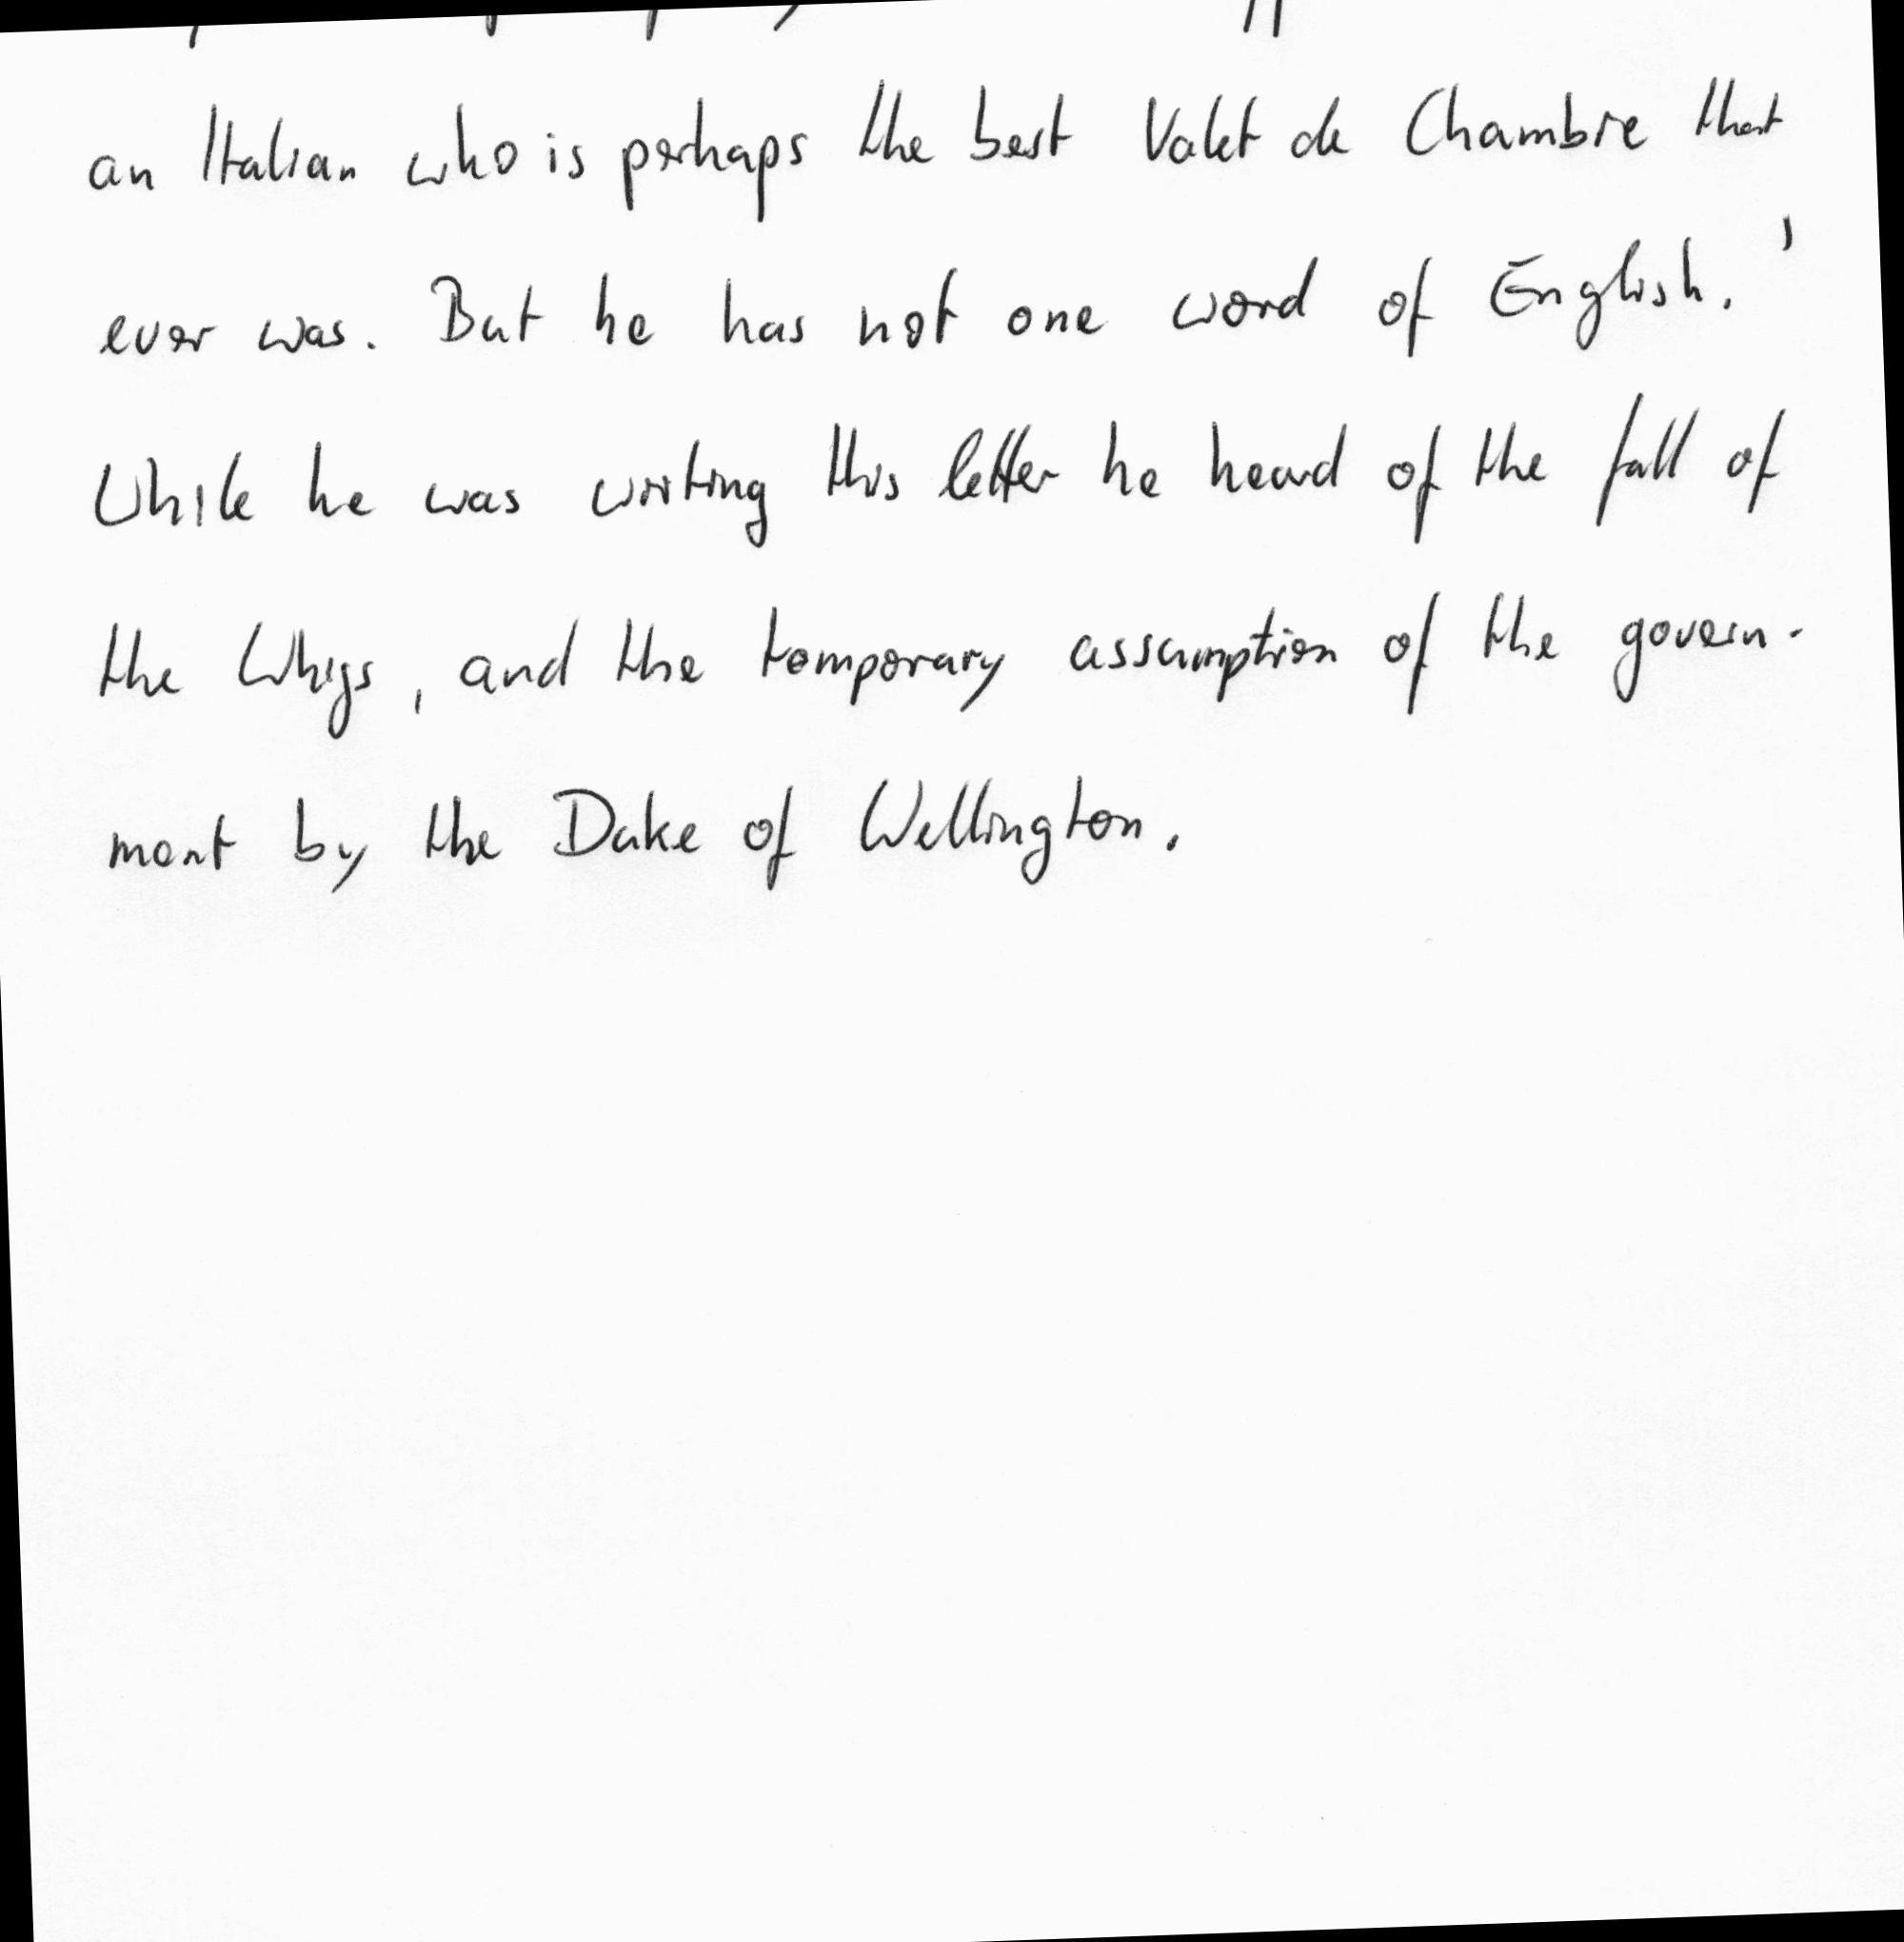 an Italian who is perhaps the best Valet de Chambre that
ever was. But he has not one word of English.'
While he was writing this letter he heard of the fall of
the Whigs, and the temporary assumption of the govern-
ment by the Duke of Wellington.